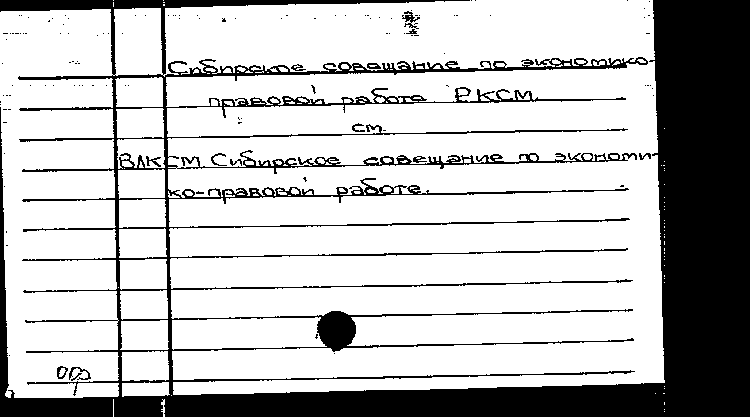 Сибирское совещание по экономико-
правовой работе РКСМ.
см.
ВЛКСМ. Сибирское совещание по экономи-
ко-правовой работе.